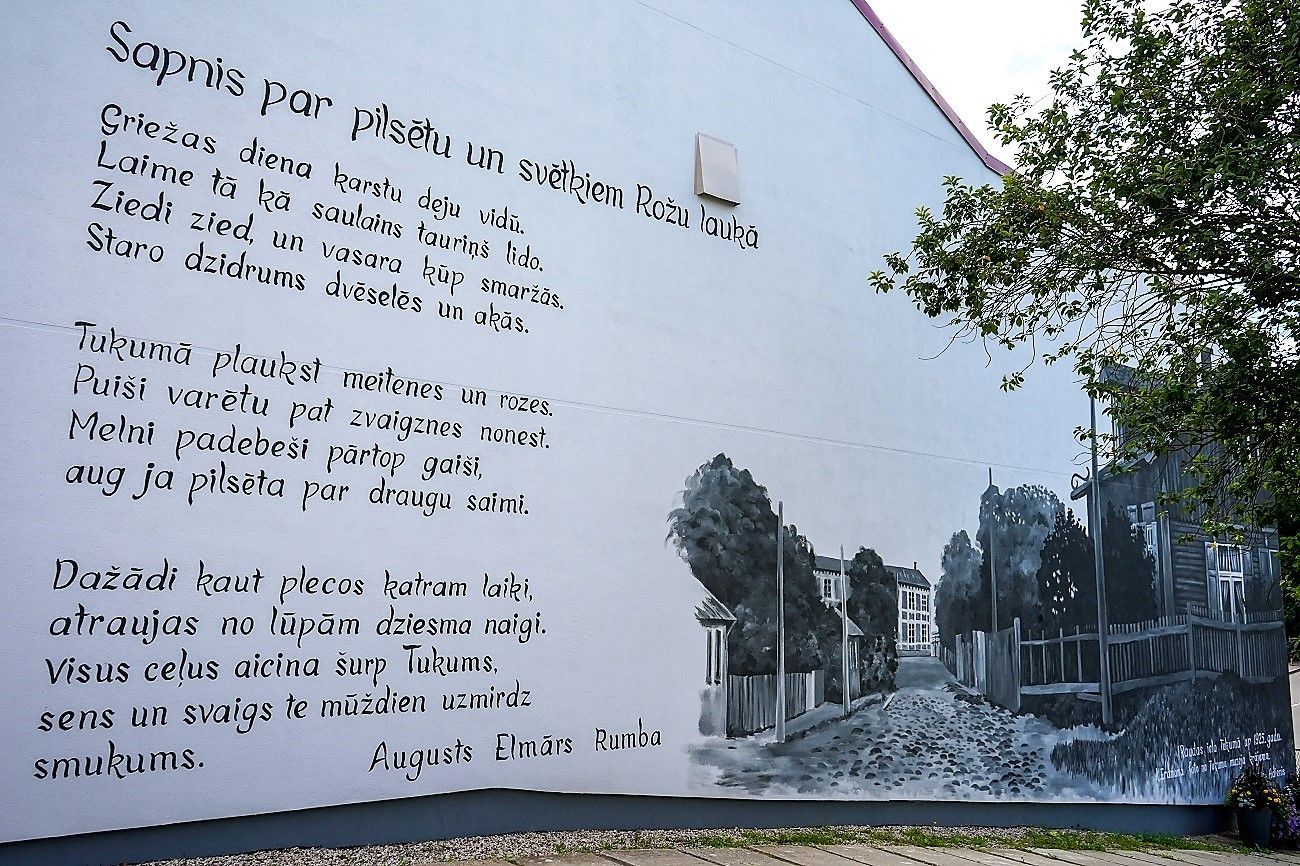 Sapnis par pilsētu un svētkiem Rožu laukā
Griežas diena karstu deju vidū.
Laime tā kā saulains tauriņš lido.
Ziedi zied, un vasara kūp smaržās.
Staro dzidrums dvēselēs un akās.
Tukumā plaukst meitenes un rozes.
Puiši varētu pat zvaigznes nonest.
Melni padebeši pārtop gaiši,
aug ja pilsēta par draugu saimi.
Dažādi kaut plecos katram laiki,
atraujas no lūpām dziesma naigi.
Visus ceļus aicina šurp Tukums,
sens un svaigs te mūždien uzmirdz
smukums.
Augusts Elmārs Rumba
Raudas iela Tukumā ap 1925. gadu.
foto no Tukuma muzeja krājuma.